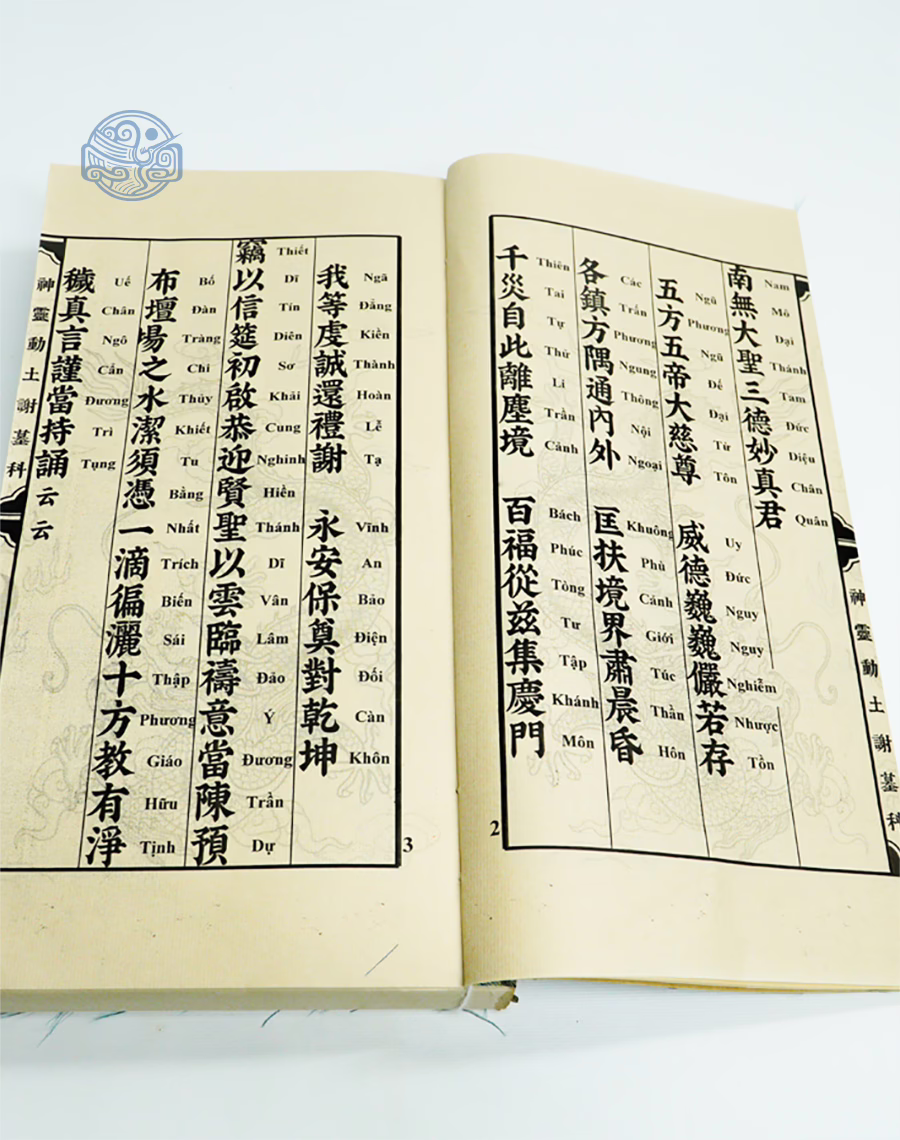 南無大聖三德妙真君
Nam Mô Đại Thánh Tam Đức Diệu Chân Quân
五方五帝大慈尊 威德巍巍儼若存
Ngũ Phương Ngũ Đế Đại Từ Tôn Uy Đức Nguy Nguy Nghiễm Nhược Tồn
各鎮方隅通內外 匡扶境界肅晨昏
Các Trấn Phương Ngung Thông Nội Ngoại Khuông Phù Cảnh Giới Túc Thần Hôn
千災自此離塵境 百福從茲集慶門
Thiên Tai Tự Thử Li Trần Cảnh Bách Phúc Tòng Tư Tập Khánh Môn
神靈動土謝墓科
2
我等虔誠還禮謝 永安保奠對乾坤
Ngã Đẳng Kiền Thành Hoàn Lễ Tạ Vĩnh An Bảo Điện Đối Càn Khôn
竊以信筵初啟恭迎賢聖以雲臨禱意當陳預
Thiết Dĩ Tín Diên Sơ Khải Cung Nghinh Hiền Thánh Dĩ Vân Lâm Đảo Ý Đương Trần Dự
布壇場之水潔須憑一滴徧灑十方教有淨
Bố Đàn Tràng Chi Thủy Khiết Tu Bằng Nhất Trích Biến Sái Thập Phương Giáo Hữu Tịnh
穢真言謹當持誦云云
Uế Chân Ngô Cẩn Đương Trì Tụng
神靈動土謝墓科
3